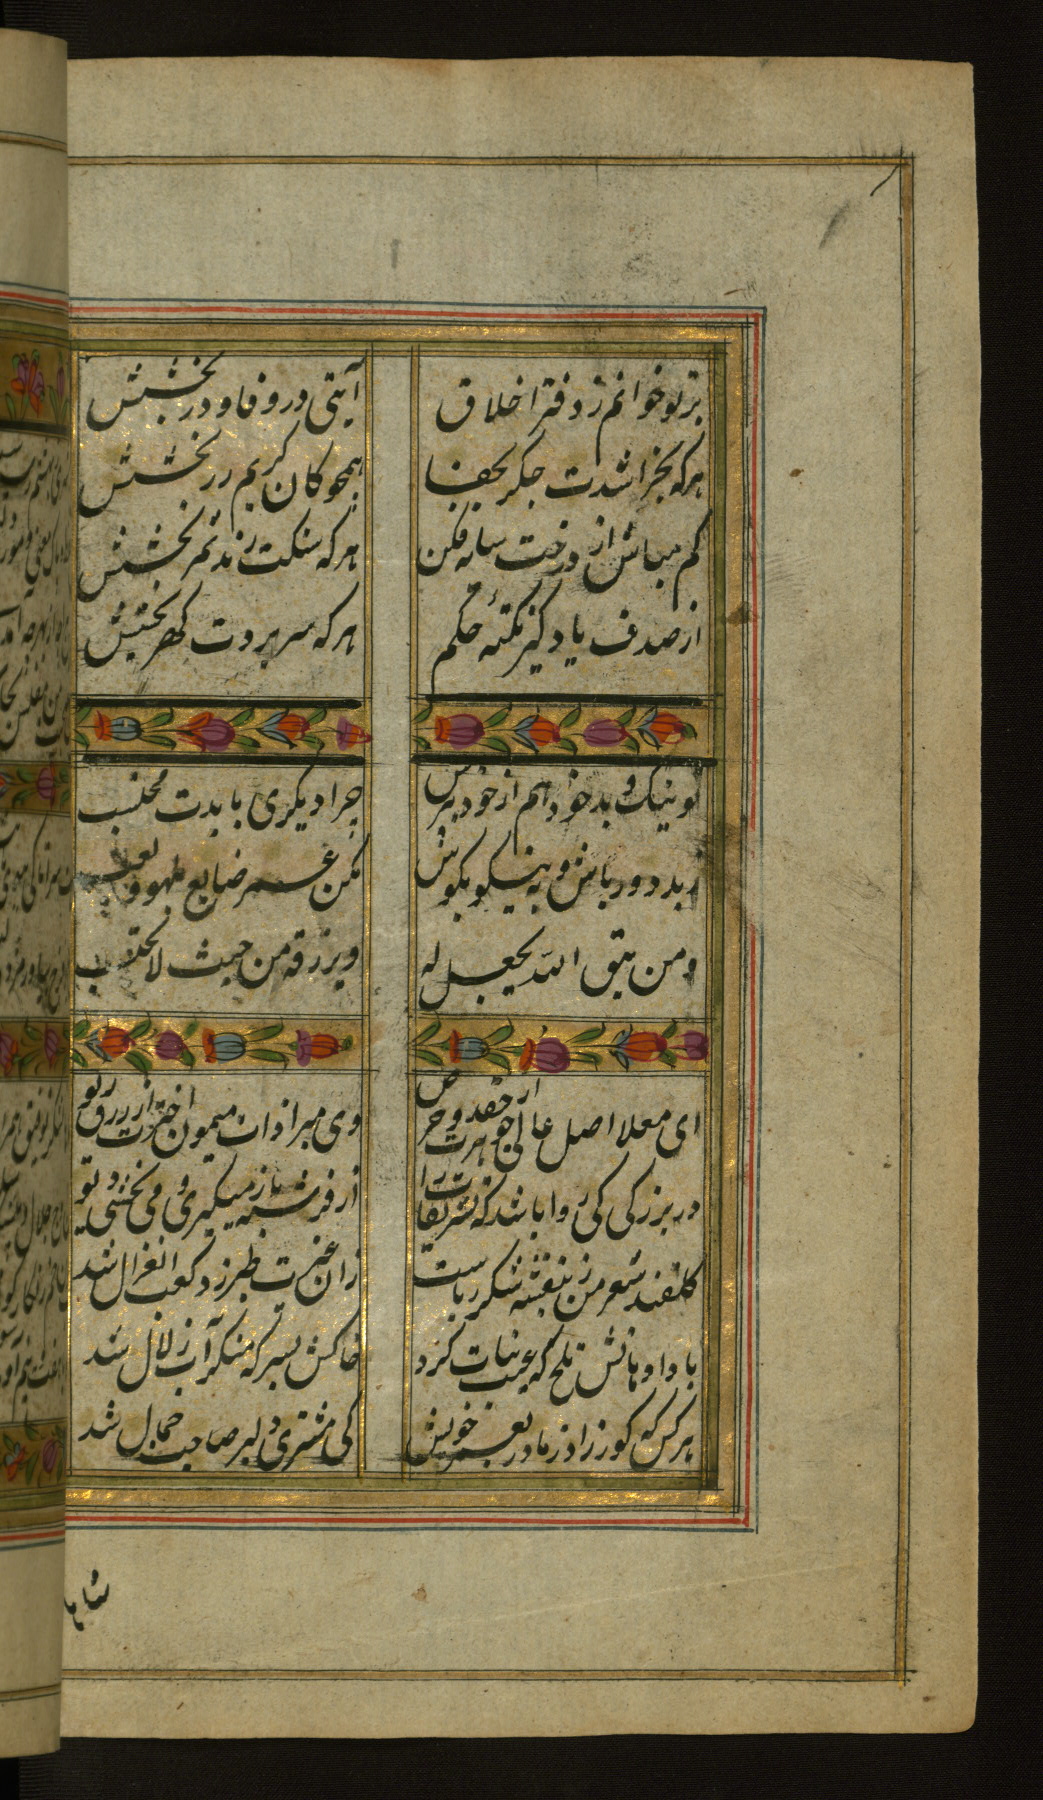 بر تو خوانم ز دفتر اخلاق
آیتی در وفا و در بخشش
هرکه بخراشدت جگر بجفا
همچو کان کریم زر بخشش
کم مباش از درخت سایه فکن
هرکه سنکت زند ثمر بخشش
از صدف یاد کیر نکتهٔ حکم
هرکه سر بردت کهر بخشش
تو نیک و بد خود هم از خود بپرس
چرا دیکری بایدت محتسب
ز بد دور باش و به نیکو بکوش
مکن عمر ضایع بلهو و لعب
ومن یتق الله یجعل له
ویرزقه من حیث لا یحتسب
ای معلا اصل عالی جوهرت از حقد و حرص
وی مبرا ذات میمون اخترت از زرق و ریو
در بزرکی کی روا باشد که تشریفات را
از فرشته باز میکیری و می بخشی دیو
کلقند شعر من ز بنفشه شکر رباست
زان غیرت طبرزد و کعب الغزال شد
بادا دهانش تلخ که عیب نبات کرد
خاکش بسر که منکر آب زلال شد
هر کس که کور زاد ز مادر بعمر خویش
کی مشتری دلبر صاحب جمال شد